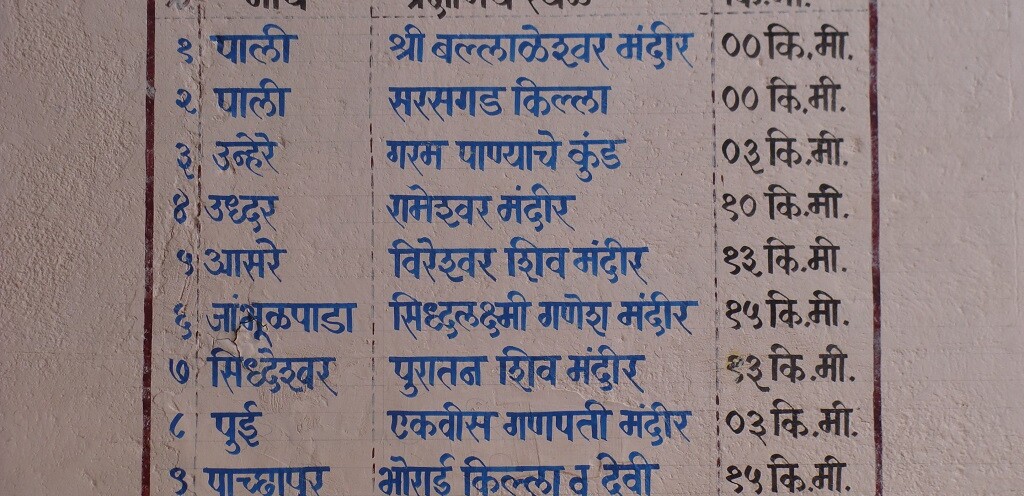 १ पाली श्री बल्लाळेश्वर मंदीर ०० कि.मी.
२ पाली सरसगड किल्ला ०० कि.मी.
३ उन्हेरे गरम पाण्याचे कुंड ०३ कि.मी.
४ उध्दर रामेश्वर मंदीर १० कि.मी.
५ आसरे विरेश्वर शिव मंदीर १३ कि.मी.
६ जांभूळपाडा सिध्दलक्ष्मी गणेश मंदीर १५ कि.मी.
७ सिध्देश्वर पुरातन शिव मंदीर १३ कि.मी.
८ पुई एकवीस गणपती मंदीर ०३ कि.मी.
९ पाच्छापूर भोराई किल्ला व देवी १५ कि.मी.